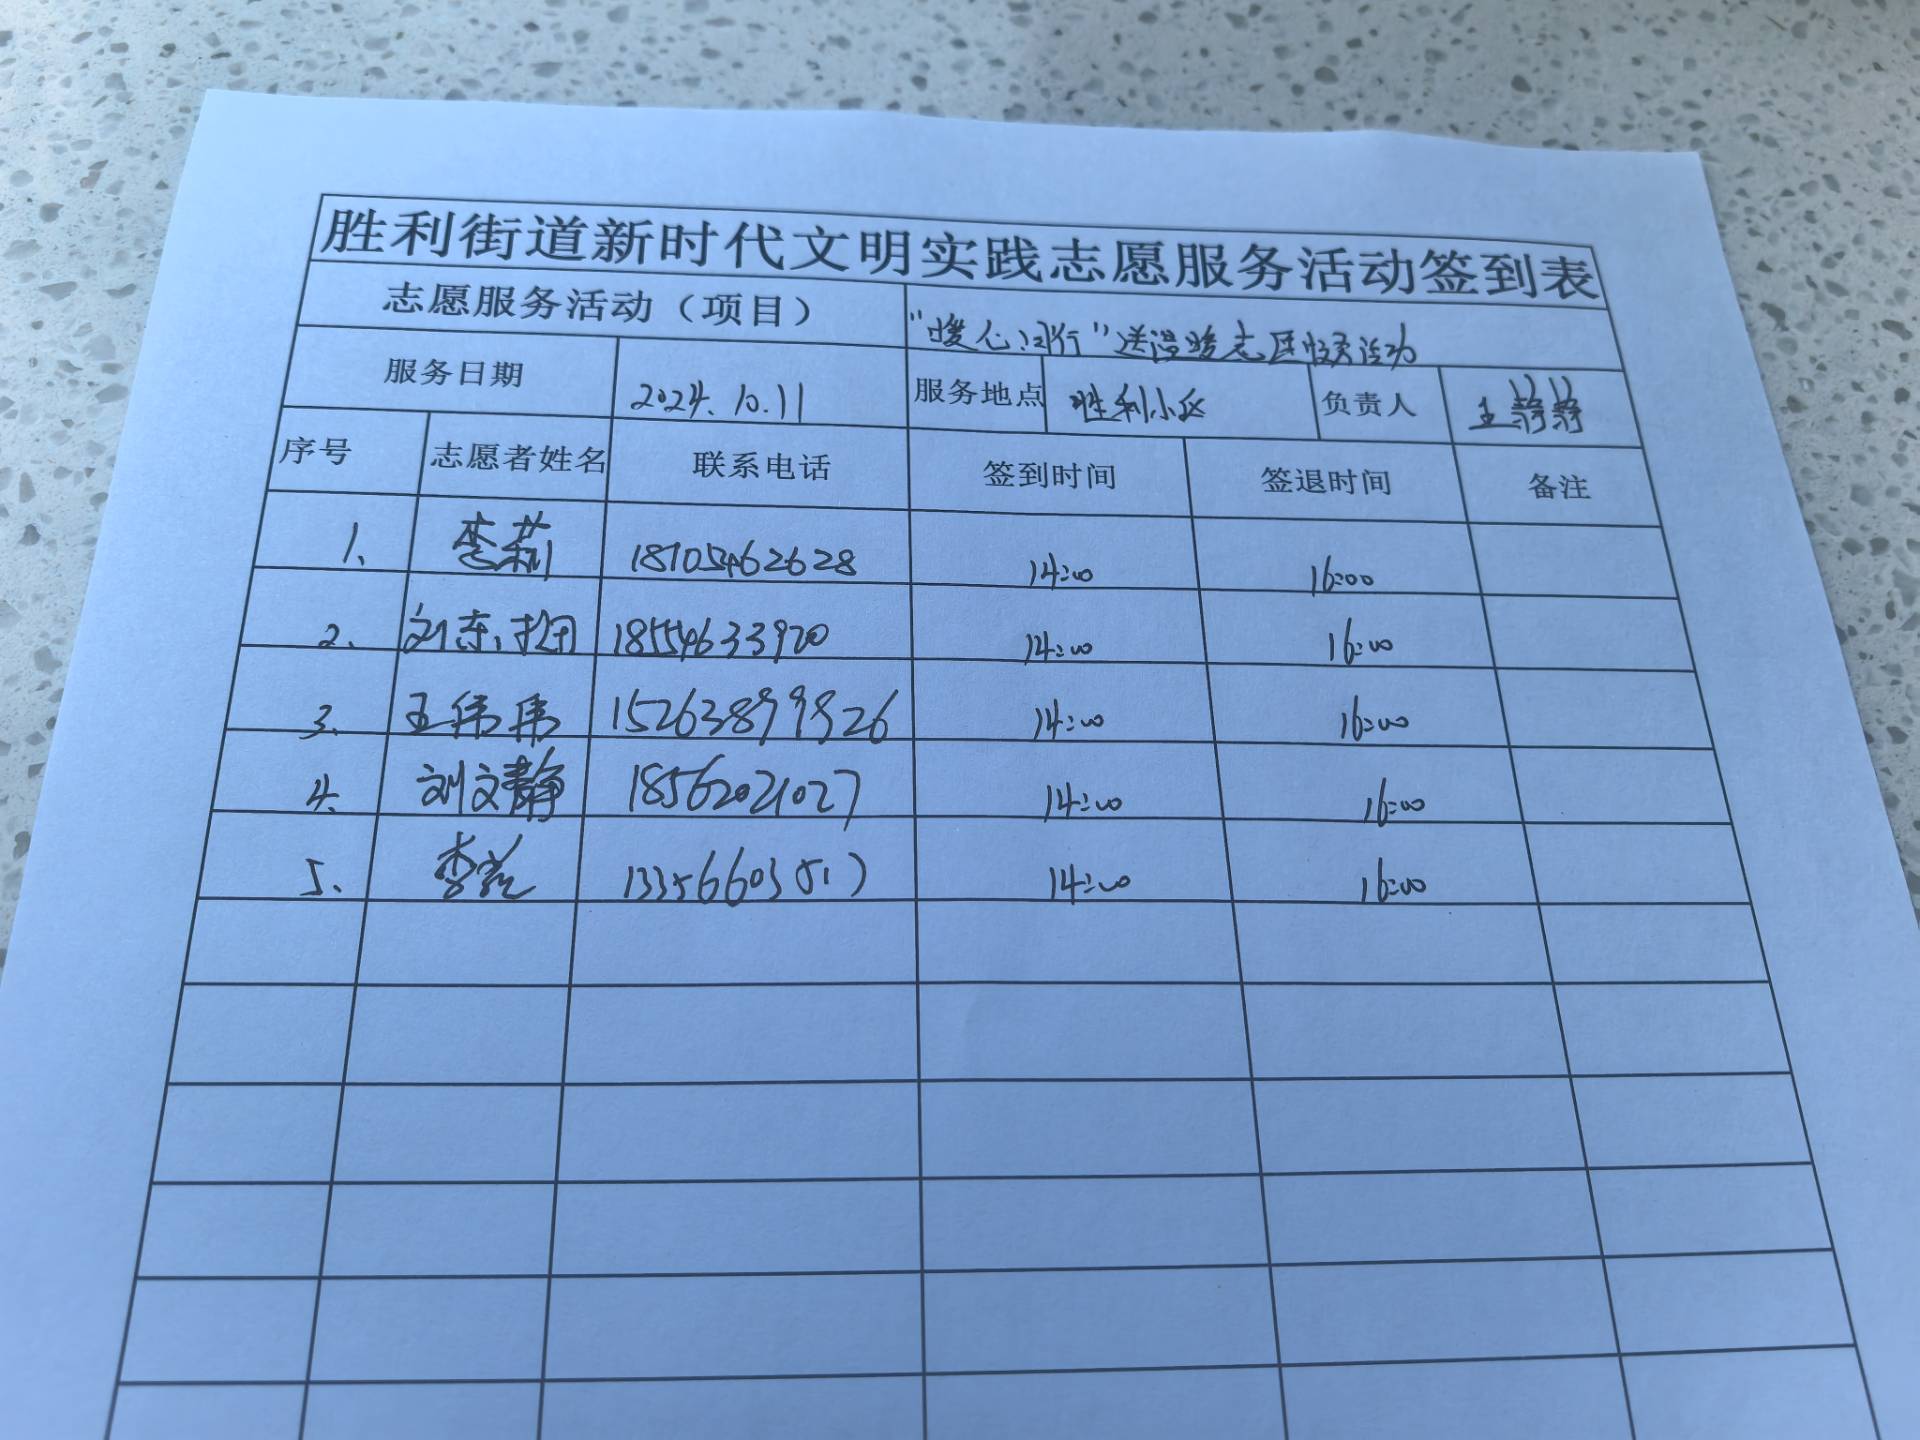 胜利街道新时代文明实践志愿服务活动签到表
志愿服务活动（项目） "暖心同行"送温暖志愿服务活动
服务日期 2024.10.11 服务地点 胜利小区 负责人 王静静
序号 志愿者姓名 联系电话 签到时间 签退时间 备注
1、 李莉 18105462628 14:00 16:00
2、 刘东 18554633920 14:00 16:00
3、 王伟伟 15263899826 14:00 16:00
4、 刘文静 18562021027 14:00 16:00
5、 李 13356603517 14:00 16:00